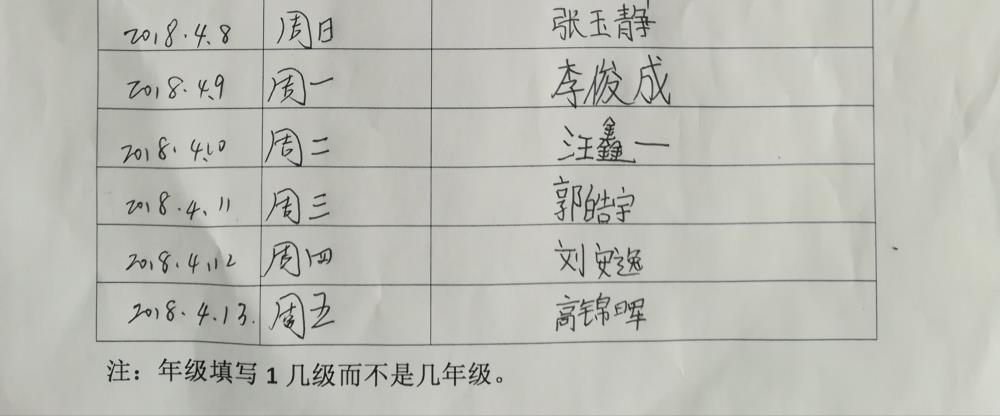 2018.4.8 周日 张玉静
2018.4.9 周一 李俊成
2018.4.10 周二 汪鑫一
2018.4.11 周三 郭皓宇
2018.4.12 周四 刘安逸
2018.4.13. 周五 高锦晖
注：年级填写1几级而不是几年级。